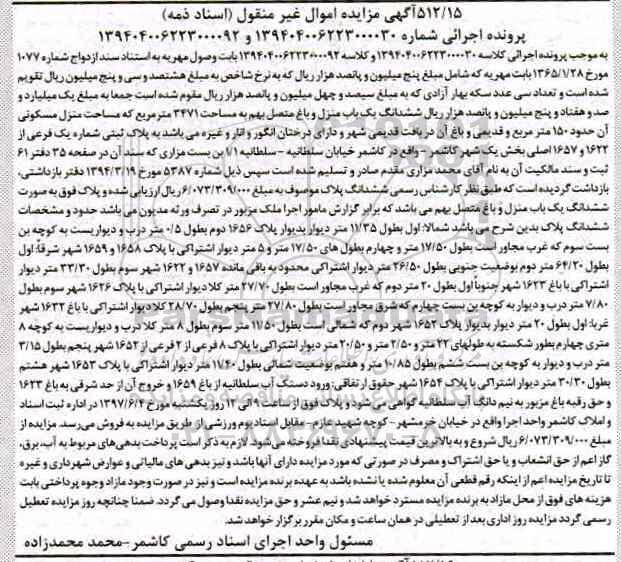 ۵۱۲/۱۵آگهی مزایده اموال غیر منقول (اسناد ذمه)
پرونده اجرائی شماره ۱۳۹۴۰۴۰۰۶۲۲۳۰۰۰۰۳۰ و ۱۳۹۴۰۴۰۰۶۲۲۳۰۰۰۰۹۲
به موجب پرونده اجرائی کلاسه ۱۳۹۴۰۴۰۰۶۲۲۳۰۰۰۰۳۰ و کلاسه ۱۳۹۴۰۴۰۰۶۲۲۳۰۰۰۰۹۲ بابت وصول مهریه به استناد سند ازدواج شماره ۱۰۷۷
مورخ ۱۳۶۵/۱/۲۸ بابت مهریه که شامل مبلغ پنج میلیون و پانصد هزار ریال که به نرخ شاخص به مبلغ هشتصد و سی و پنج میلیون ریال تقویم
شده است و تعداد سی عدد سکه بهار آزادی که به مبلغ سیصد و چهل میلیون و پانصد هزار ریال مقوم شده است جمعا به مبلغ یک میلیارد و
صد و هفتاد و پنج میلیون و پانصد هزار ریال ششدانگ یک باب منزل و باغ متصل بهم به مساحت ۳۴۷۱ متر مربع که مساحت منزل مسکونی
آن حدود ۱۵۰ متر مربع و قدیمی و باغ آن در بافت قدیمی شهر و دارای درختان انگور و انار و غیره می باشد به پلاک ثبتی شماره یک فرعی از
۱۶۲۲ و ۱۶۵۷ اصلی بخش یک شهر کاشمر - واقع در کاشمر خیابان سلطانیه - سلطانیه ۱/۱ بن بست مزاری که سند آن در صفحه ۳۵ دفتر ۶۱
ثبت و سند مالکیت آن به نام آقای محمد مزاری مقدم صادر و تسلیم شده است سپس ذیل شماره ۵۳۸۷ مورخ ۱۳۹۴/۳/۱۹ دفتر بازداشتی،
بازداشت گردیده است که طبق نظر کارشناس رسمی ششدانگ پلاک موصوف به مبلغ ۶/۰۷۳/۳۰۹/۰۰۰ ریال ارزیابی شده و پلاک فوق به صورت
ششدانگ یک باب منزل و باغ متصل بهم می باشد که برابر گزارش مامور اجرا ملک مزبور در تصرف ورثه مدیون می باشد حدود و مشخصات
ششدانگ پلاک بدین شرح می باشد شمالا: اول بطول ۱۱/۳۵ متر دیوار بدیوار پلاک ۱۶۵۶ دوم بطول ۰/۵ متر درب و دیواریست به کوچه بن
بست سوم که غرب مجاور است بطول ۱۷/۵۰ متر و چهارم بطول های ۱۷/۵۰ متر و ۵ متر دیوار اشتراکی با پلاک ۱۶۵۸ و ۱۶۵۹ شهر شرقا: اول
بطول ۶۴/۲۰ متر دوم بوضعیت جنوبی بطول ۲۶/۵۰ متر دیوار اشتراکی محدود به باقی مانده ۱۶۵۷ و ۱۶۲۲ شهر سوم بطول ۳۳/۳۰ متر دیوار
اشتراکی با باغ ۱۶۲۳ شهر جنوبا اول بطول ۲۰ متر دوم که غرب مجاور است بطول ۲۷/۷۰ متر کلا دیوار اشتراکی با پلاک ۱۶۲۶ شهر سوم بطول
۷/۸۰ متر درب و دیوار به کوچه بن بست چهارم که شرق مجاور است بطول ۲۷/۸۰ متر پنجم بطول ۲۸/۷۰ کلا دیوار اشتراکی با باغ ۱۶۳۲ شهر
غربا: اول بطول ۲۰ متر دیوار بدیوار پلاک ۱۶۵۲ شهر دوم که شمالی است بطول ۱۱/۵۰ متر سوم بطول ۸ متر کلا درب و دیواریست به کوچه ۸
متری چهارم بطور شکسته به طولهای ۲۲ متر و ۲/۵۰ متر و ۲۰/۵۰ متر دیوار اشتراکی با پلاک ۸ فرعی از ۲ فرعی از ۱۶۵۲ شهر پنجم بطول ۳/۱۵
متر درب و دیوار به کوچه بن بست ششم بطول ۱۰/۸۵ متر و هفتم بوضعیت شمالی بطول ۱۱/۴۰ متر دیوار اشتراکی با پلاک ۱۶۵۳ شهر هشتم
بطول ۳۰/۳۰ متر دیوار اشتراکی با پلاک ۱۶۵۴ شهر حقوق ارتفاقی: ورود دستگ آب سلطانیه از باغ ۱۶۵۹ و خروج آن از حد شرقی به باغ ۱۶۲۳
و حق رقبه باغ مزبور به نیم دانگ آب سلطانیه گواهی می شود و پلاک فوق از ساعت ۹ الی ۱۲ روز یکشنبه مورخ ۱۳۹۷/۶/۴ در اداره ثبت اسناد
و املاک کاشمر واحد اجرا واقع در خیابان خرمشهر - کوچه شهید عازم - مقابل استادیوم ورزشی از طریق مزایده به فروش می رسد. مزایده از
مبلغ ۶/۰۷۳/۳۰۹/۰۰۰ ریال شروع و به بالاترین قیمت پیشنهادی نقدا فروخته می شود. لازم به ذکر است پرداخت بدهی های مربوط به آب، برق،
گاز اعم از حق انشعاب و یا حق اشتراک و مصرف در صورتی که مورد مزایده دارای آنها باشد و نیز بدهی های مالیاتی و عوارض شهرداری و غیره
تا تاریخ مزایده اعم از اینکه رقم قطعی آن معلوم شده یا نشده باشد به عهده برنده مزایده است و نیز در صورت وجود مازاد وجوه پرداختی بابت
هزینه های فوق از محل مازاد به برنده مزایده مسترد خواهد شد و نیم عشر و حق مزایده نقدا وصول می گردد. ضمنا چنانچه روز مزایده تعطیل
رسمی گردد مزایده روز اداری بعد از تعطیلی در همان ساعت و مکان مقرر برگزار خواهد شد.
مسئول واحد اجرای اسناد رسمی کاشمر-محمد محمدزاده